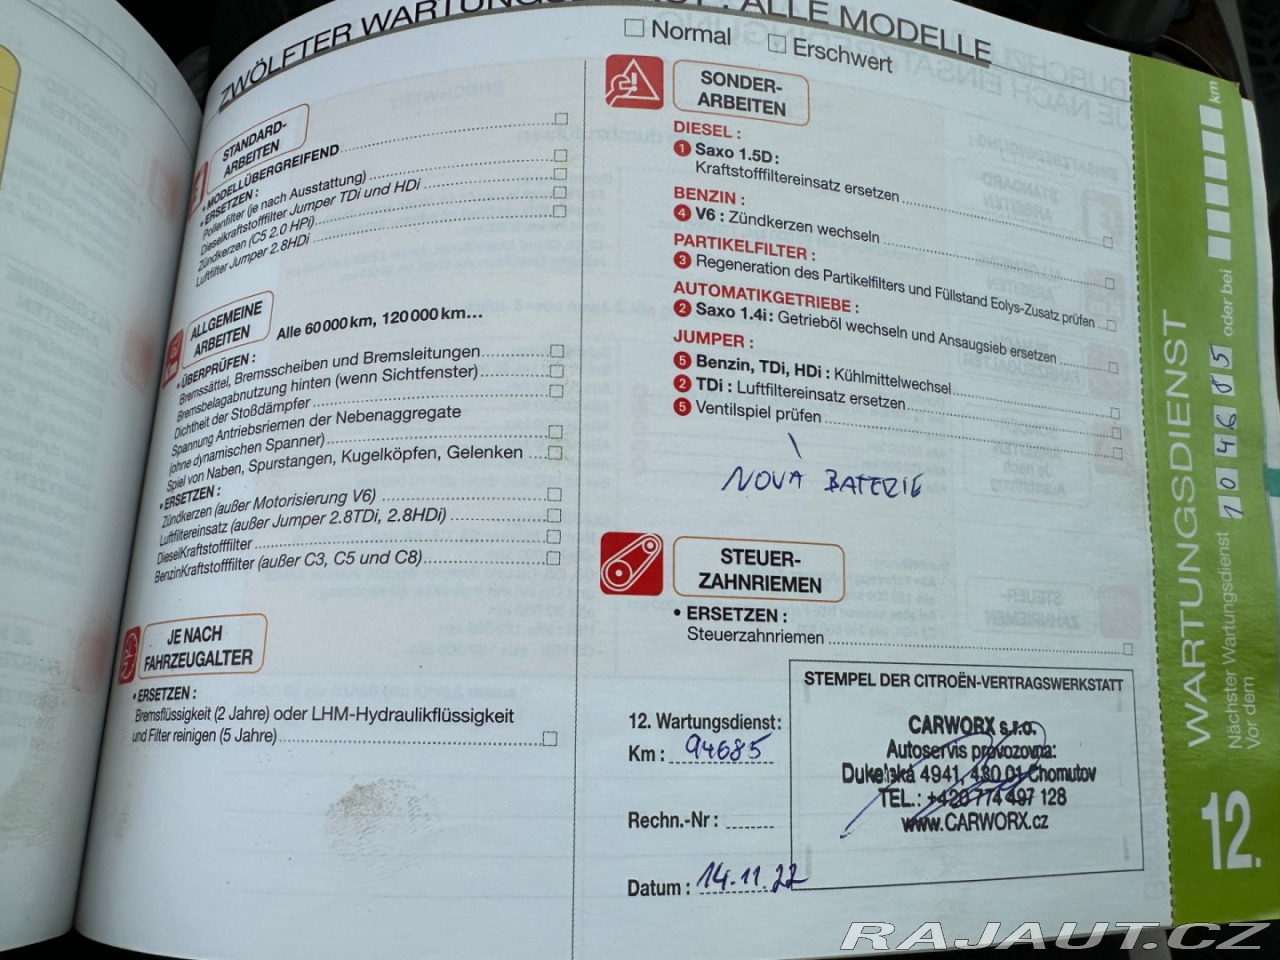 ZWÖLFTER WARTUNGSDIENST : ALLE MODELLE
Normal
Erschwert
STANDARD-
ARBEITEN
• MODELLÜBERGREIFEND
• ERSETZEN :
Pollenfilter (je nach Ausstattung)
Dieselkraftstofffilter Jumper TDi und HDi
Zündkerzen (C5 2.0 HPi)
Luftfilter Jumper 2.8HDi
ALLGEMEINE
ARBEITEN
Alle 60 000 km, 120 000 km...
• ÜBERPRÜFEN :
Bremssättel, Bremsscheiben und Bremsleitungen
Bremsbelagabnutzung hinten (wenn Sichtfenster)
Dichtheit der Stoßdämpfer
Spannung Antriebsriemen der Nebenaggregate
(ohne dynamischen Spanner)
Spiel von Naben, Spurstangen, Kugelköpfen, Gelenken
• ERSETZEN :
Zündkerzen (außer Motorisierung V6)
Luftfiltereinsatz (außer Jumper 2.8TDi, 2.8HDi)
DieselKraftstofffilter
BenzinKraftstofffilter (außer C3, C5 und C8)
JE NACH
FAHRZEUGALTER
• ERSETZEN :
Bremsflüssigkeit (2 Jahre) oder LHM-Hydraulikflüssigkeit
und Filter reinigen (5 Jahre)
SONDER-
ARBEITEN
DIESEL :
1 Saxo 1.5D :
Kraftstofffiltereinsatz ersetzen
BENZIN :
4 V6 : Zündkerzen wechseln
PARTIKELFILTER :
3 Regeneration des Partikelfilters und Füllstand Eolys-Zusatz prüfen
AUTOMATIKGETRIEBE :
2 Saxo 1.4i : Getrieböl wechseln und Ansaugsieb ersetzen
JUMPER :
5 Benzin, TDi, HDi : Kühlmittelwechsel
2 TDi : Luftfiltereinsatz ersetzen
5 Ventilspiel prüfen
NOVA BATERIE
STEUER-
ZAHNRIEMEN
• ERSETZEN :
Steuerzahnriemen
STEMPEL DER CITROËN-VERTRAGSWERKSTATT
12. Wartungsdienst:
Km : 94685
Rechn.-Nr :
Datum : 14.11.22
CARWORX s.r.o.
Autoservis provozovna:
Dukelská 4941, 430 01 Chomutov
TEL.: +420 774 497 128
www.CARWORX.cz
12. WARTUNGSDIENST
Nächster Wartungsdienst 104685 oder bei km
Vor dem
RAJAUT.CZ